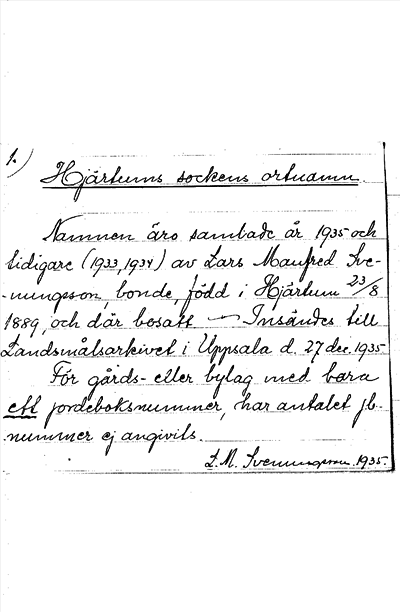 1.)
Hjärtums sockens ortnamn.
Namnen äro samlade år 1935 och
tidigare (1933, 1934) av Lars Manfred Sve-
-nungsson, bonde, född i Hjärtum 23/8
1889, och där bosatt — Insändes till
Landsmålsarkivet i Uppsala d. 27 dec. 1935
För gårds- eller bylag med bara
ett jordeboksnummer, har antalet jb.-
nummer ej angivits.
L. M. Svenungsson. 1935.